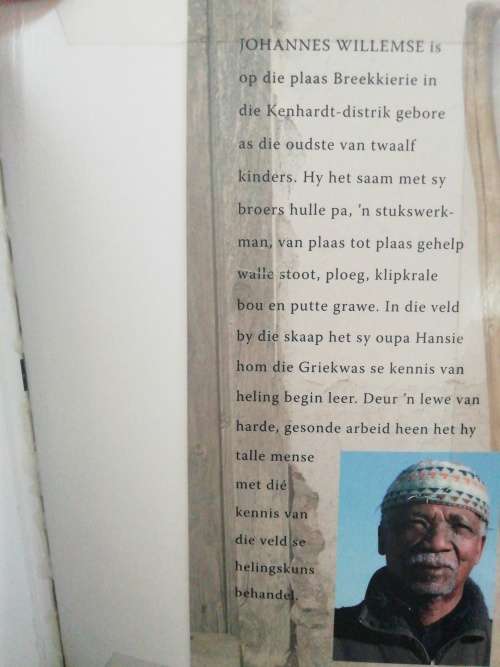 JOHANNES WILLEMSE is
op die plaas Breekkierie in
die Kenhardt-distrik gebore
as die oudste van twaalf
kinders. Hy het saam met sy
broers hulle pa, 'n stukswerk-
man, van plaas tot plaas gehelp
walle stoot, ploeg, klipkrale
bou en putte grawe. In die veld
by die skaap het sy oupa Hansie
hom die Griekwas se kennis van
heling begin leer. Deur 'n lewe van
harde, gesonde arbeid heen het hy
talle mense
met dié
kennis van
die veld se
helingskuns
behandel.